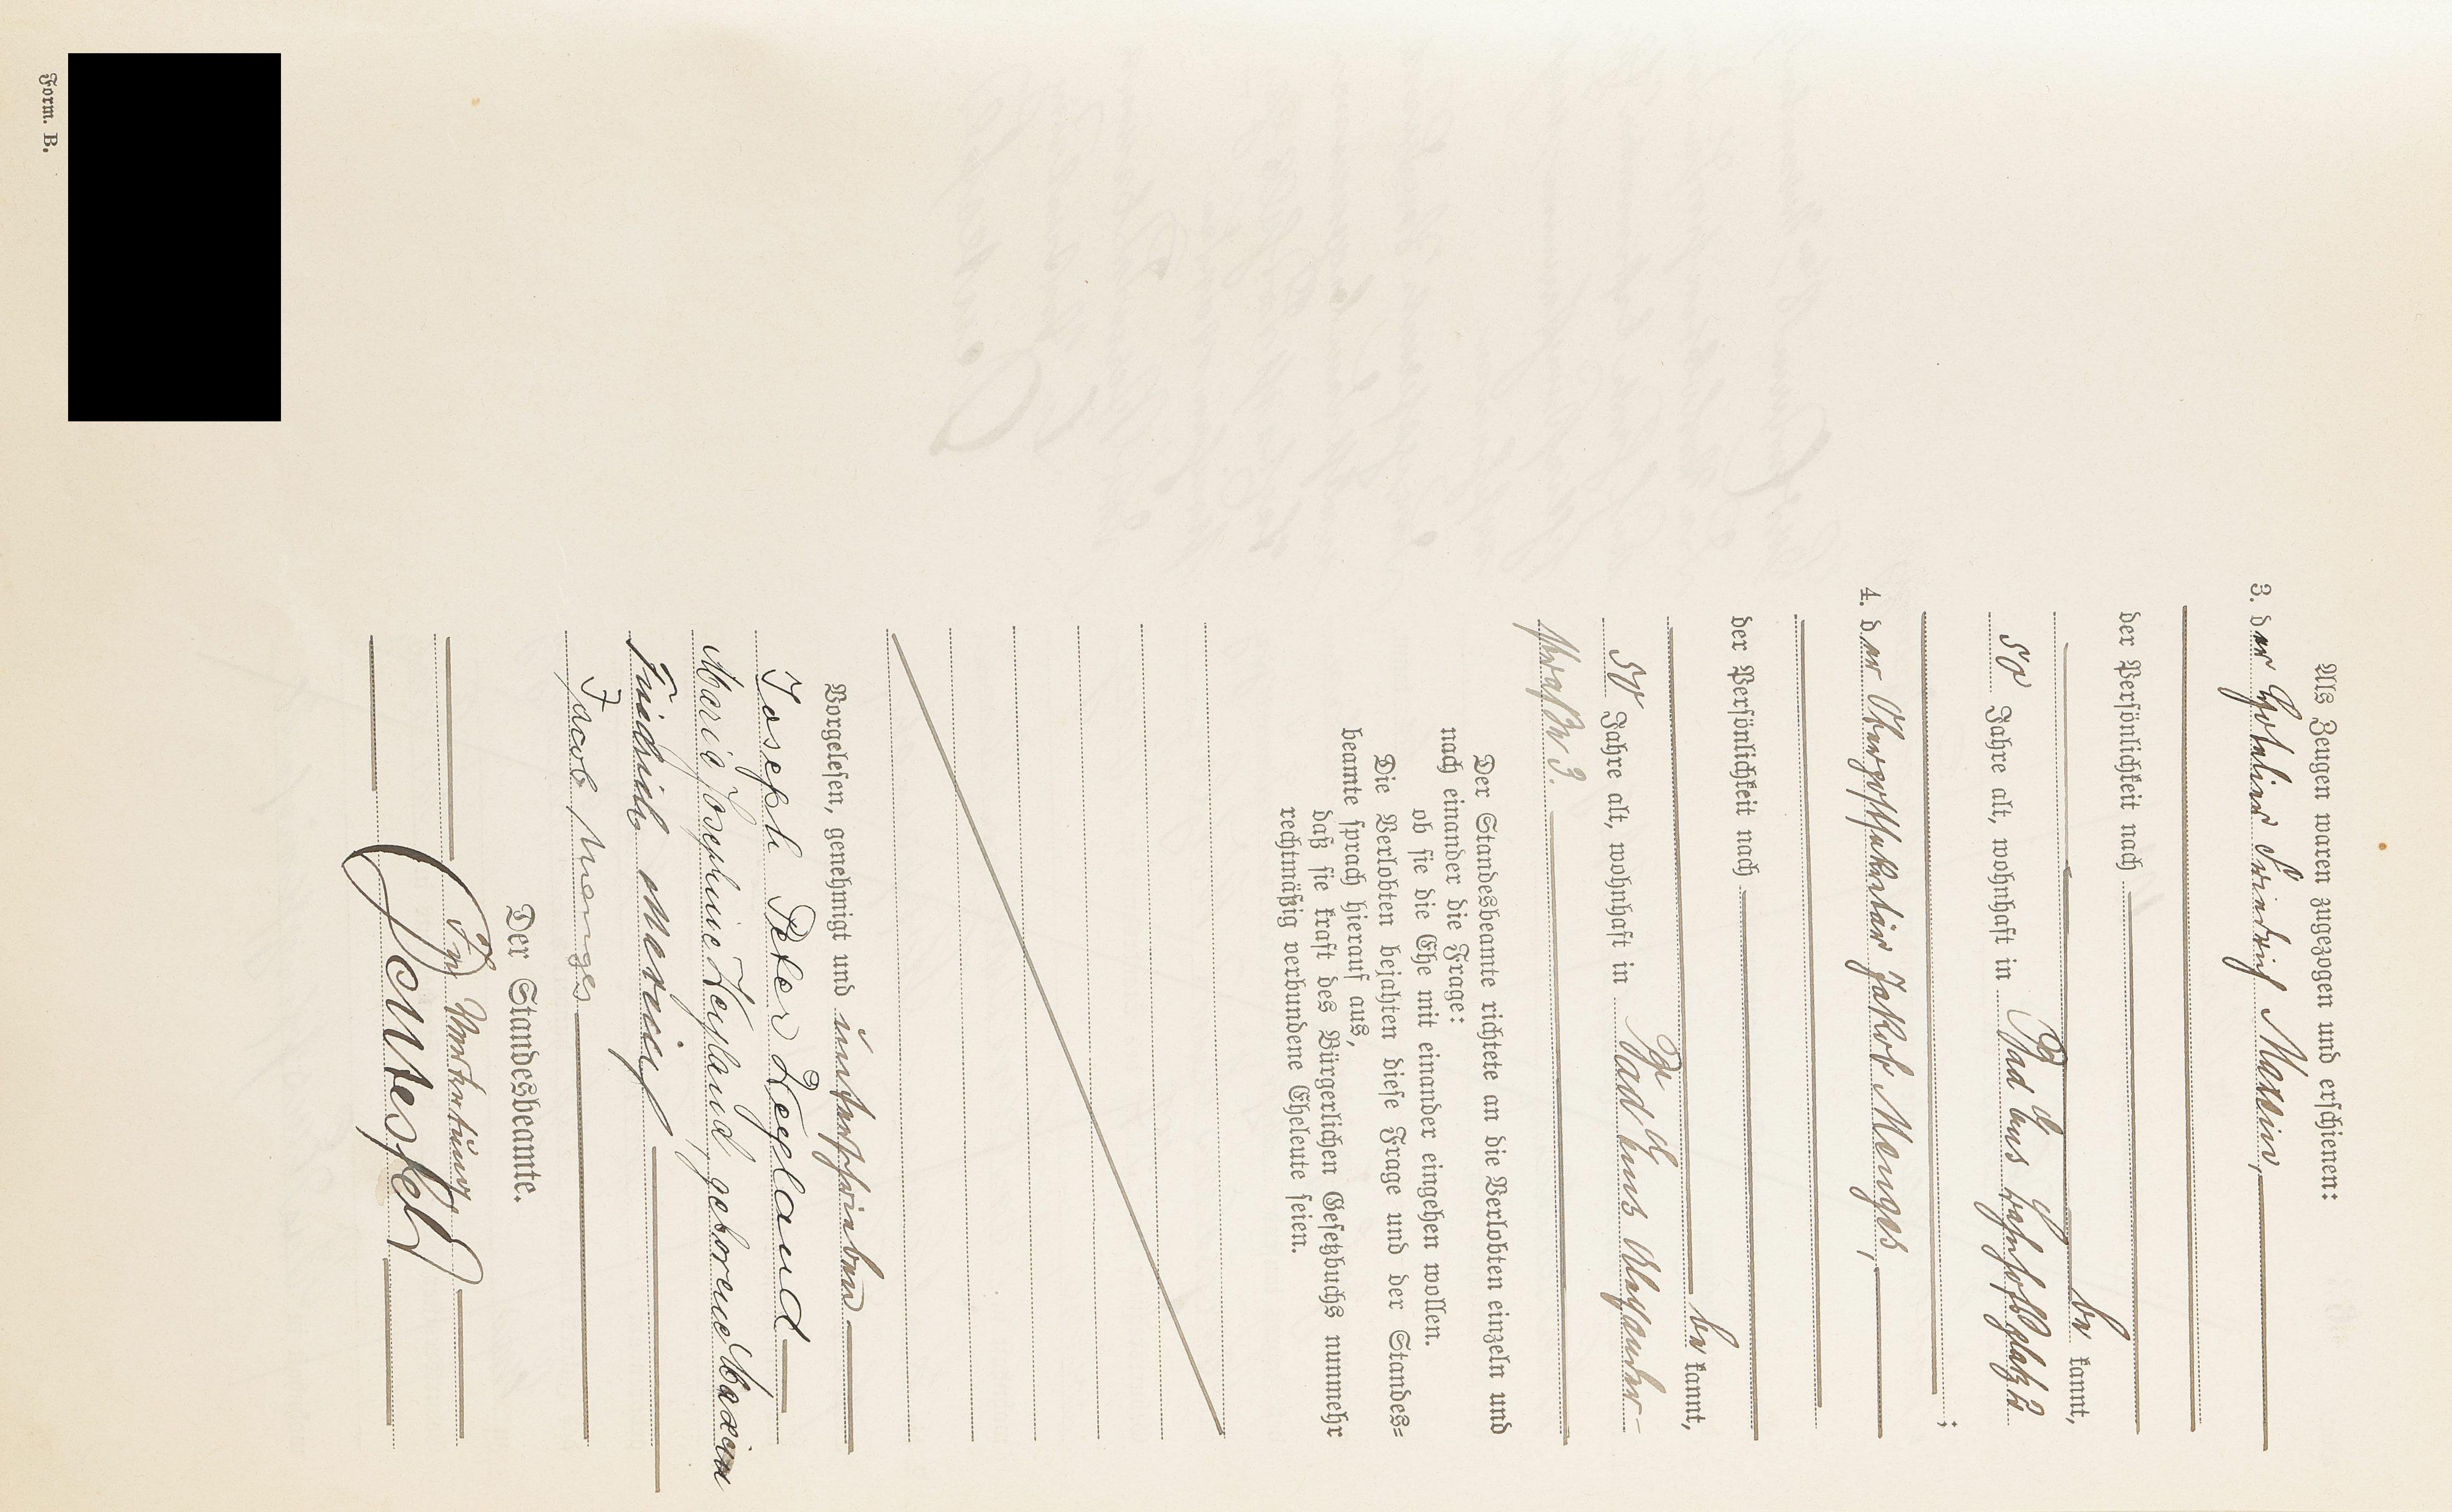 Als Zeugen waren zugezogen und erschienen:
3. der Hotelier Friedrich Maxein,
der Persönlichkeit nach
be kannt,
50 Jahre alt, wohnhaft in Bad Ems Bahnhofsplatz 2
;
4. der Oberpostsekretär Jakob Menges,
der Persönlichkeit nach
be kannt,
50 Jahre alt, wohnhaft in Bad Ems Alexander-
straße 3.
Der Standesbeamte richtete an die Verlobten einzeln und
nach einander die Frage:
ob sie die Ehe mit einander eingehen wollen.
Die Verlobten bejahten diese Frage und der Standes=
beamte sprach hierauf aus,
daß sie kraft des Bürgerlichen Gesetzbuchs nunmehr
rechtmäßig verbundene Eheleute seien.
Vorgelesen, genehmigt und unterschrieben
Joseph Peter Heyland
Marie Josephine Heyland geborene Maxein
Friedrich Maxein
Jacob Menges
Der Standesbeamte.
In Vertretung
Form. B.